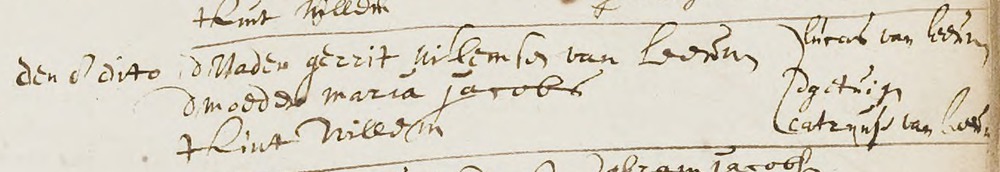 tkint Willem
den 8 dito dVader gerrit Willemse van Leeuwen
dmoeder maria jacobs
tkint Willem
lucas van leeuwen
dgetuijgen
catrijntie van leeuwen
Abram jacobse